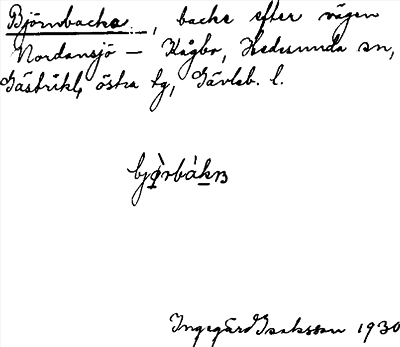 Björnbacke, backe efter vägen
Nordansjö – Kågbo, Hedesunda sn,
Gästrikl, östra tg, Gävleb. l.
Ingegärd Isaksson 1930